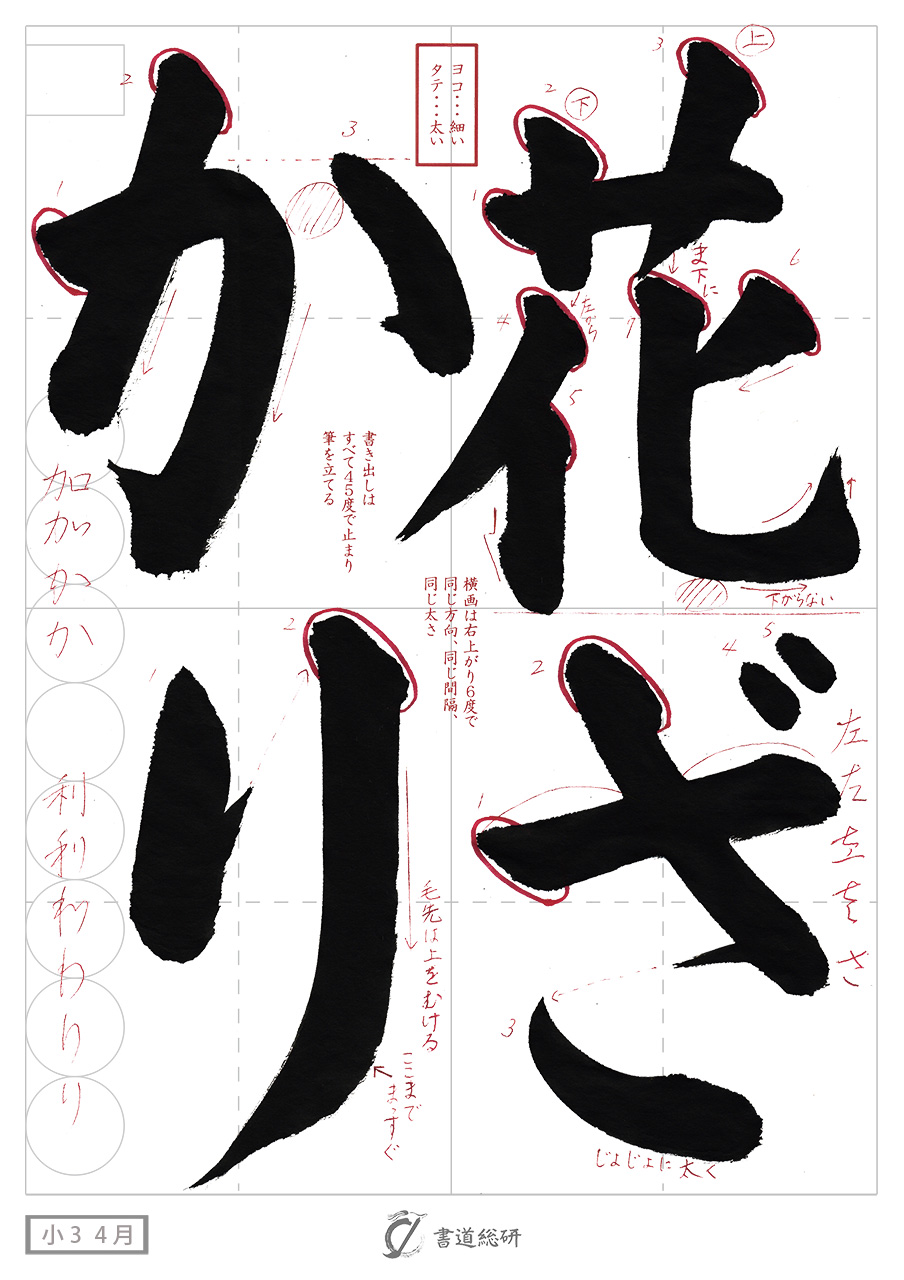 花ざ
かり
ヨコ・・・細い
タテ・・・太い
上
下
1
2
3
4
5
6
7
ま下に
左がら
下がらない
書き出しは
すべて45度で止まり
筆を立てる
横画は右上がり6度で
同じ方向、同じ間隔、
同じ太さ
1
2
3
4
5
左
左
さ
じょじょに太く
1
2
3
加
か
か
1
2
毛先は上をむける
ここまで
まっすぐ
利
利
わ
り
り
小3 4月
書道総研